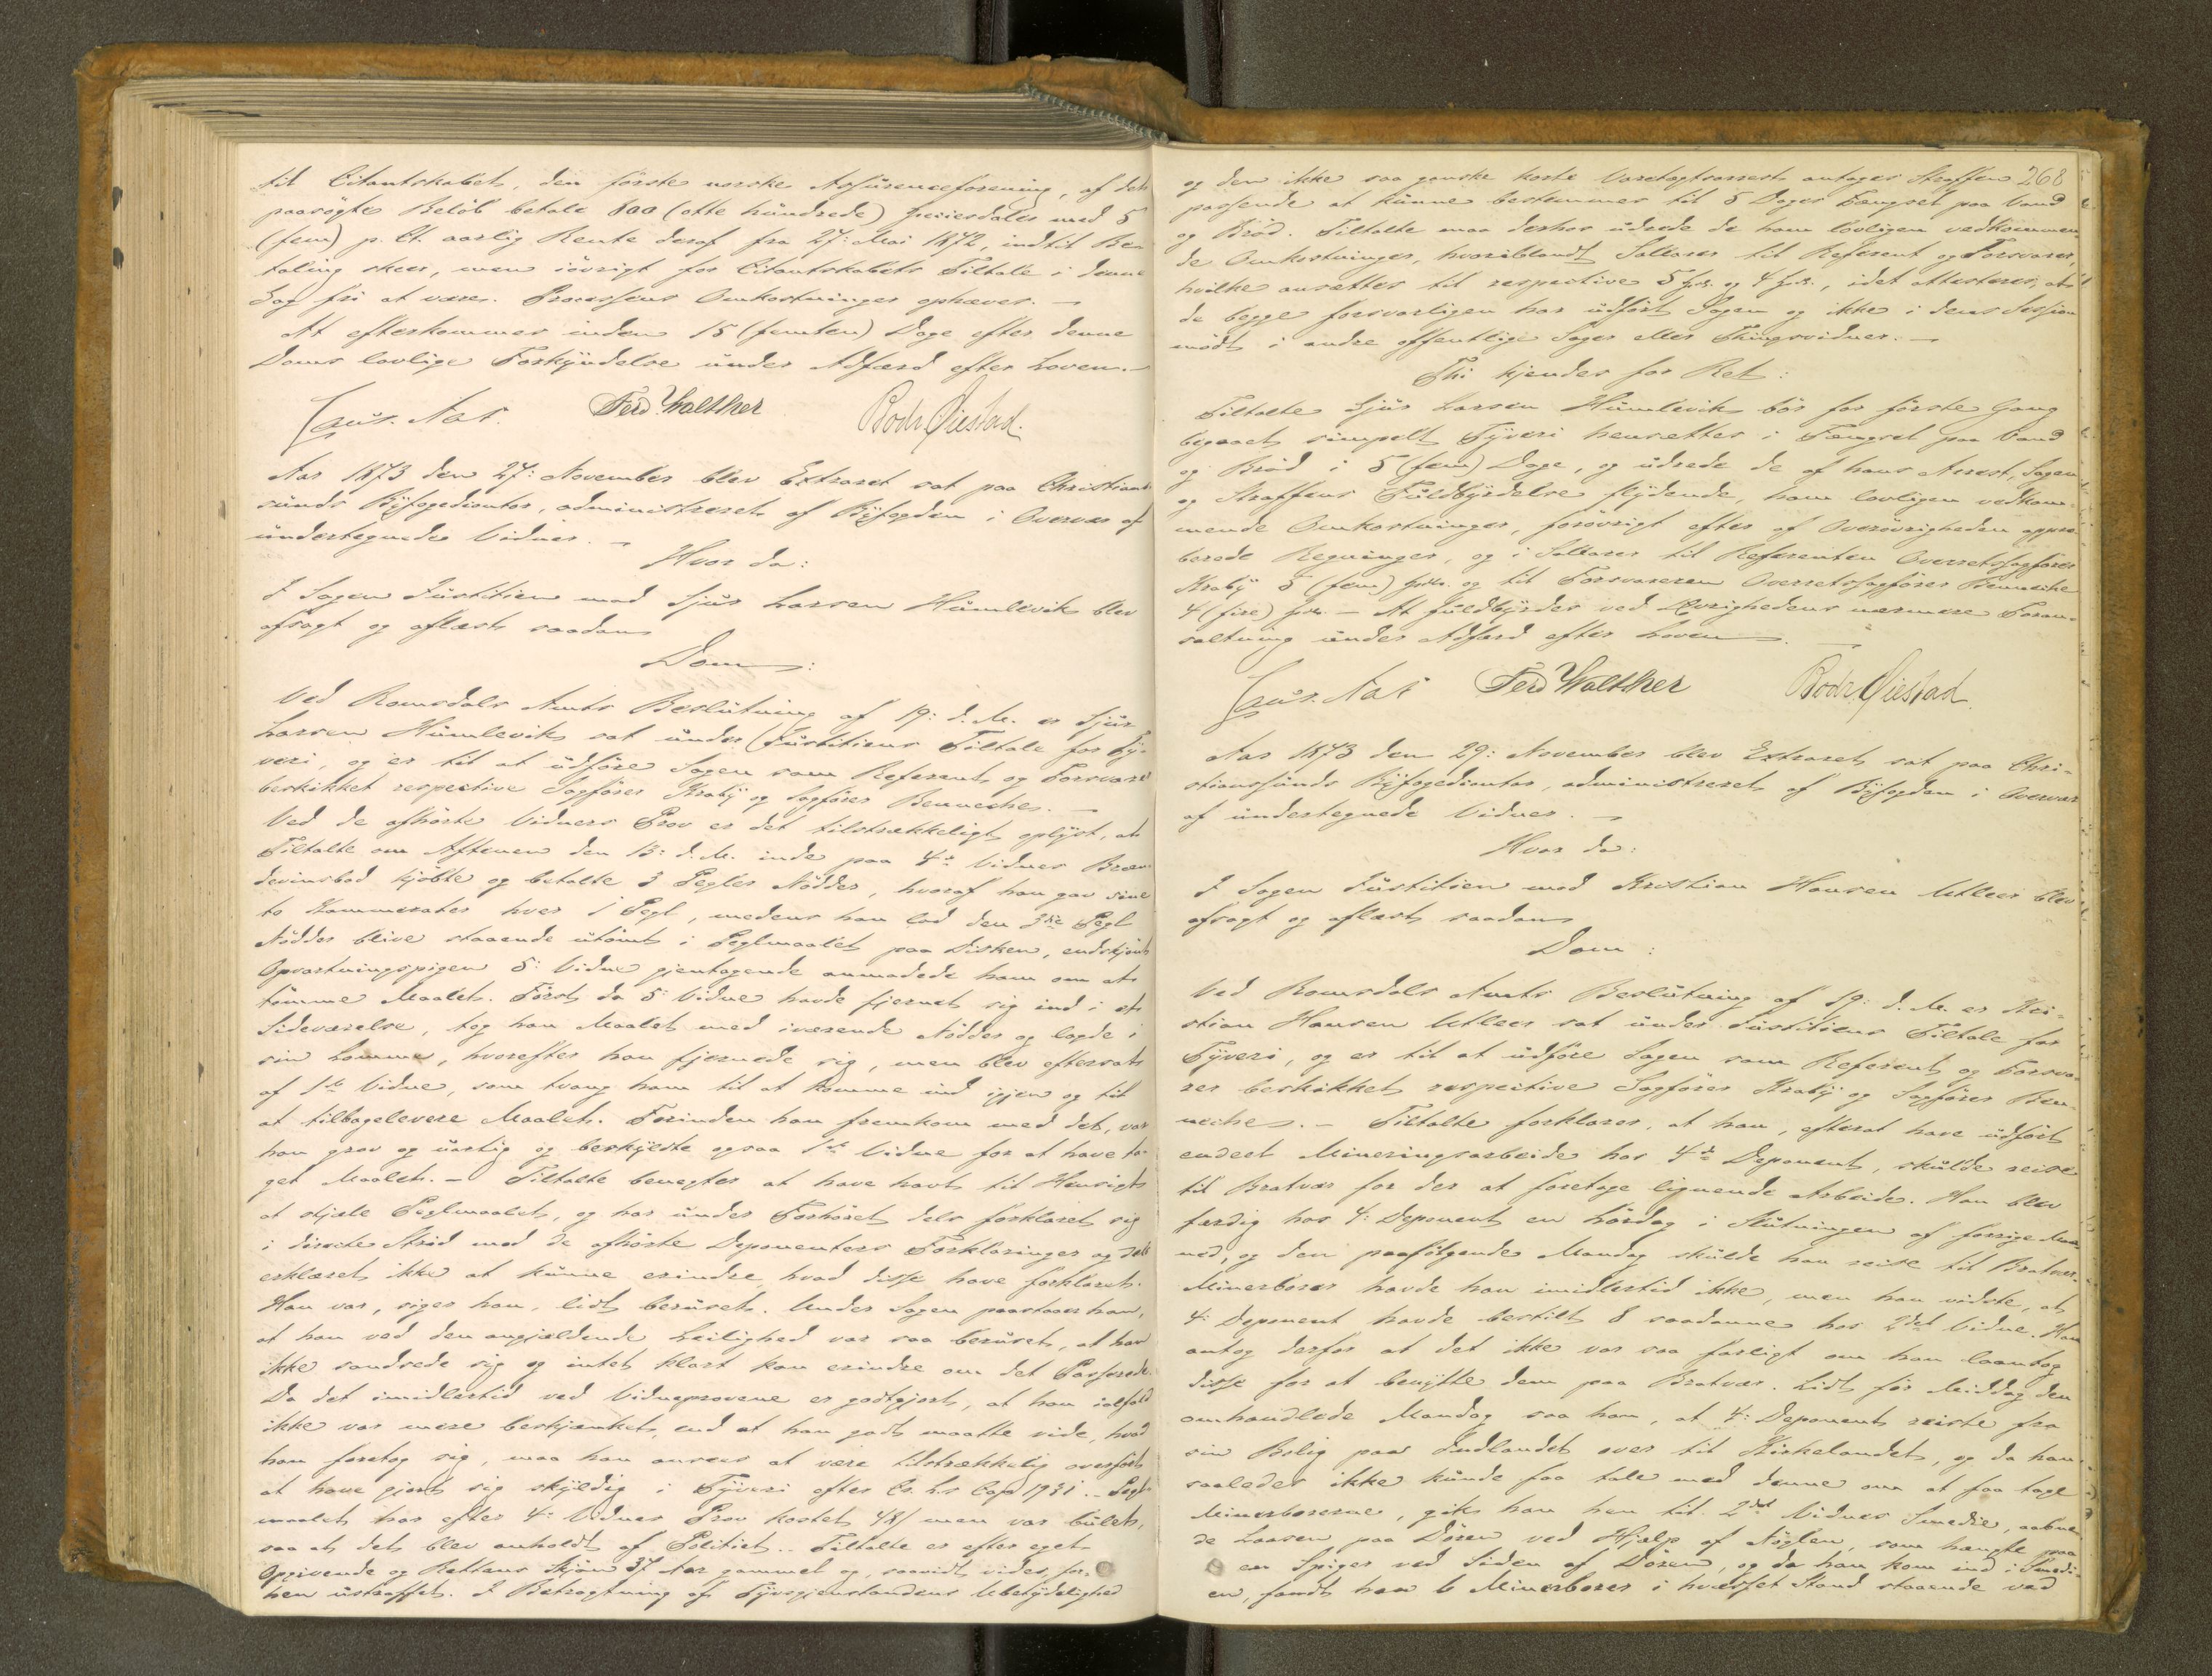 til Citantskabet, den förste norske Assuranceforening, af det
paasögte Belöb betale 800 (otte hundrede) Speciesdaler med 5
(fem) p. Ct. aarlig Rente deraf fra 27: Mai 1872, indtil Be-
taling skeer, men iövrigt for Citantskabets Tiltale i denne
Sag fri at være. Processens Omkostninger ophæves. —
At efterkommes inden 15 (femten) Dage efter denne
Doms lovlige Forkyndelse under Adfærd efter Loven. —
Ferd Walther Bodv. Øiestad.
Aar 1873 den 27: November blev Extraret sat paa Christian-
sunds Byfogedcontor, administreret af Byfogden i Overvær af
undertegnede Vidner. —
Hvor da:
I Sagen Justitien mod Sjur Larsen Humlevik blev
afsagt og aflæst saadan
Dom:
Ved Romsdals Amts Beslutning af 19: d. M. er Sjur
Larsen Humlevik sat under Justitiens Tiltale for Ty-
veri, og er til at udföre Sagen som Referent og Forsvarer
beskikket respective Sagförer Kraby og Sagförer Benneche. —
Ved de afhörte Vidners Prov er det tilstrækkeligt oplyst, at
Tiltalte om Aftenen den 13: d. M. inde paa 4de Vidnes Bræn-
devinsbod kjöbte og betalte 3 Pegler Nödder, hvoraf han gav sine
to Kammerater hver 1 Pegl, medens han lod den 3die Pegl
Nödder blive staaende utömt i Peglmaalet paa Disken, endskjönt
Opvartningspigen 5: Vidne gjentagende anmodede ham om at
tömme Maalet. Först da 5: Vidne havde fjernet sig ind i et
Sideværelse, tog han Maalet med iværende Nödder og lagde i
sin Lomme, hvorefter han fjernede sig, men blev eftersat
af 1ste Vidne, som tvang ham til at komme ind igjen og til
at tilbagelevere Maalet. Forinden han fremkom med det, var
han grov og uartig og beskyldte ogsaa 1ste Vidne for at have ta-
get Maalet. — Tiltalte benegter at have havt til Hensigt
at stjæle Peglmaalet, og har under Forhöret dels forklaret sig
i directe Strid med de afhörte Deponenters Forklaringer og dels
erklæret ikke at kunne erindre hvad disse have forklaret.
Han var, siger han, lidt beruset. Under Sagen paastaar han,
at han ved den angjældende Leilighed var saa beruset, at han
ikke sandsede sig og intet klart kan erindre om det Passerede.
Da det imidlertid ved Vidneprovene er godtgjort, at han ialfald
ikke var mere beskjænket, end at han godt maatte vide, hvad
han foretog sig, maa han ansees at være tilstrækkelig overfört
at have gjort sig skyldig i Tyveri efter Cr. L.s Cap 19 § 1. — Pegl-
maalet har efter 4: Vidnes Prov kostet 48 / men var bulet,
saa at det blev anholdt af Politiet. — Tiltalte er efter eget
Opgivende og Rettens Skjön 37 Aar gammel og, saavidt vides, for-
hen ustraffet. I Betragtning af Tyvsgjenstandens Ubetydelighed
268
og den ikke saa ganske korte Varetægtsarrest antages Straffen
passende at kunne bestemmes til 5 Dages Fængsel paa Vand
og Bröd. Tiltalte maa derhos udrede de ham lovligen vedkommen-
de Omkostninger, hvoriblandt Sallarer til Referent og Forsvarer,
hvilke ansættes til respective 5 Spd. og 4 Spd., idet attesteres, at
de begge forsvarligen har udfört Sagen og ikke i dens Session
mödt i andre offentlige Sager eller Thingsvidner. —
Thi kjendes for Ret:
Tiltalte Sjur Larsen Humlevik bör for förste Gang
begaaet simpelt Tyveri hensættes i Fængsel paa Vand
og Bröd i 5 (fem) Dage, og udrede de af hans Arrest, Sagen
og Straffens Fuldbyrdelse flydende, ham lovligen vedkom-
mende Omkostninger, forövrigt efter af Overövrigheden appro-
berede Regninger, og i Sallarer til Referenten Overretssagförer
Kraby 5 (fem) Spdlr. og til Forsvareren Overretssagförer Benneche
4 (fire) Spd. — At fuldbyrdes ved Øvrighedens nærmere Foran-
staltning under Adfærd efter Loven.
Ferd Walther Bodv. Øiestad.
Aar 1873 den 29: November blev Extraret sat paa Chri-
stianssunds Byfogedcontor, administreret af Byfogden i Overvær
af undertegnede Vidner. —
Hvor da:
I Sagen Justitien mod Kristian Hansen Utleer blev
afsagt og aflæst saadan
Dom:
Ved Romsdals Amts Beslutning af 19: d. M. er Kri-
stian Hansen Utleer sat under Justitiens Tiltale for
Tyveri, og er til at udföre Sagen som Referent og Forsva-
rer beskikket respective Sagförer Kraby og Sagförer Ben-
neche. — Tiltalte forklarer, at han, efterat have udfört
endeel Mineringsarbeide hos 4de Deponent, skulde reise
til Bratvær for der at foretage lignende Arbeide. Han blev
færdig hos 4: Deponent en Lördag i Slutningen af forrige Maa-
ned, og den paafölgende Mandag skulde han reise til Bratvær.
Minerborer havde han imidlertid ikke, men han vidste, at
4: Deponent havde bestilt 8 saadanne hos 2det Vidne. Han
antog derfor at det ikke var saa farligt om han laantog
disse for at benytte dem paa Bratvær. Lidt för Middag den
omhandlede Mandag saa han, at 4: Deponent reiste fra
sin Bolig paa Indlandet over til Kirkelandet, og da han
saaledes ikke kunde faa tale med denne om at faa tage
Minerborerne, gik han hen til 2det Vidnes Smedie, aabne-
de Laasen paa Dören ved Hjælp af Nöglen, som hængte paa
en Spiger ved Siden af Dören, og da han kom ind i Smedi-
en, fandt han 6 Minerborer i hvæsset Stand staaende ved